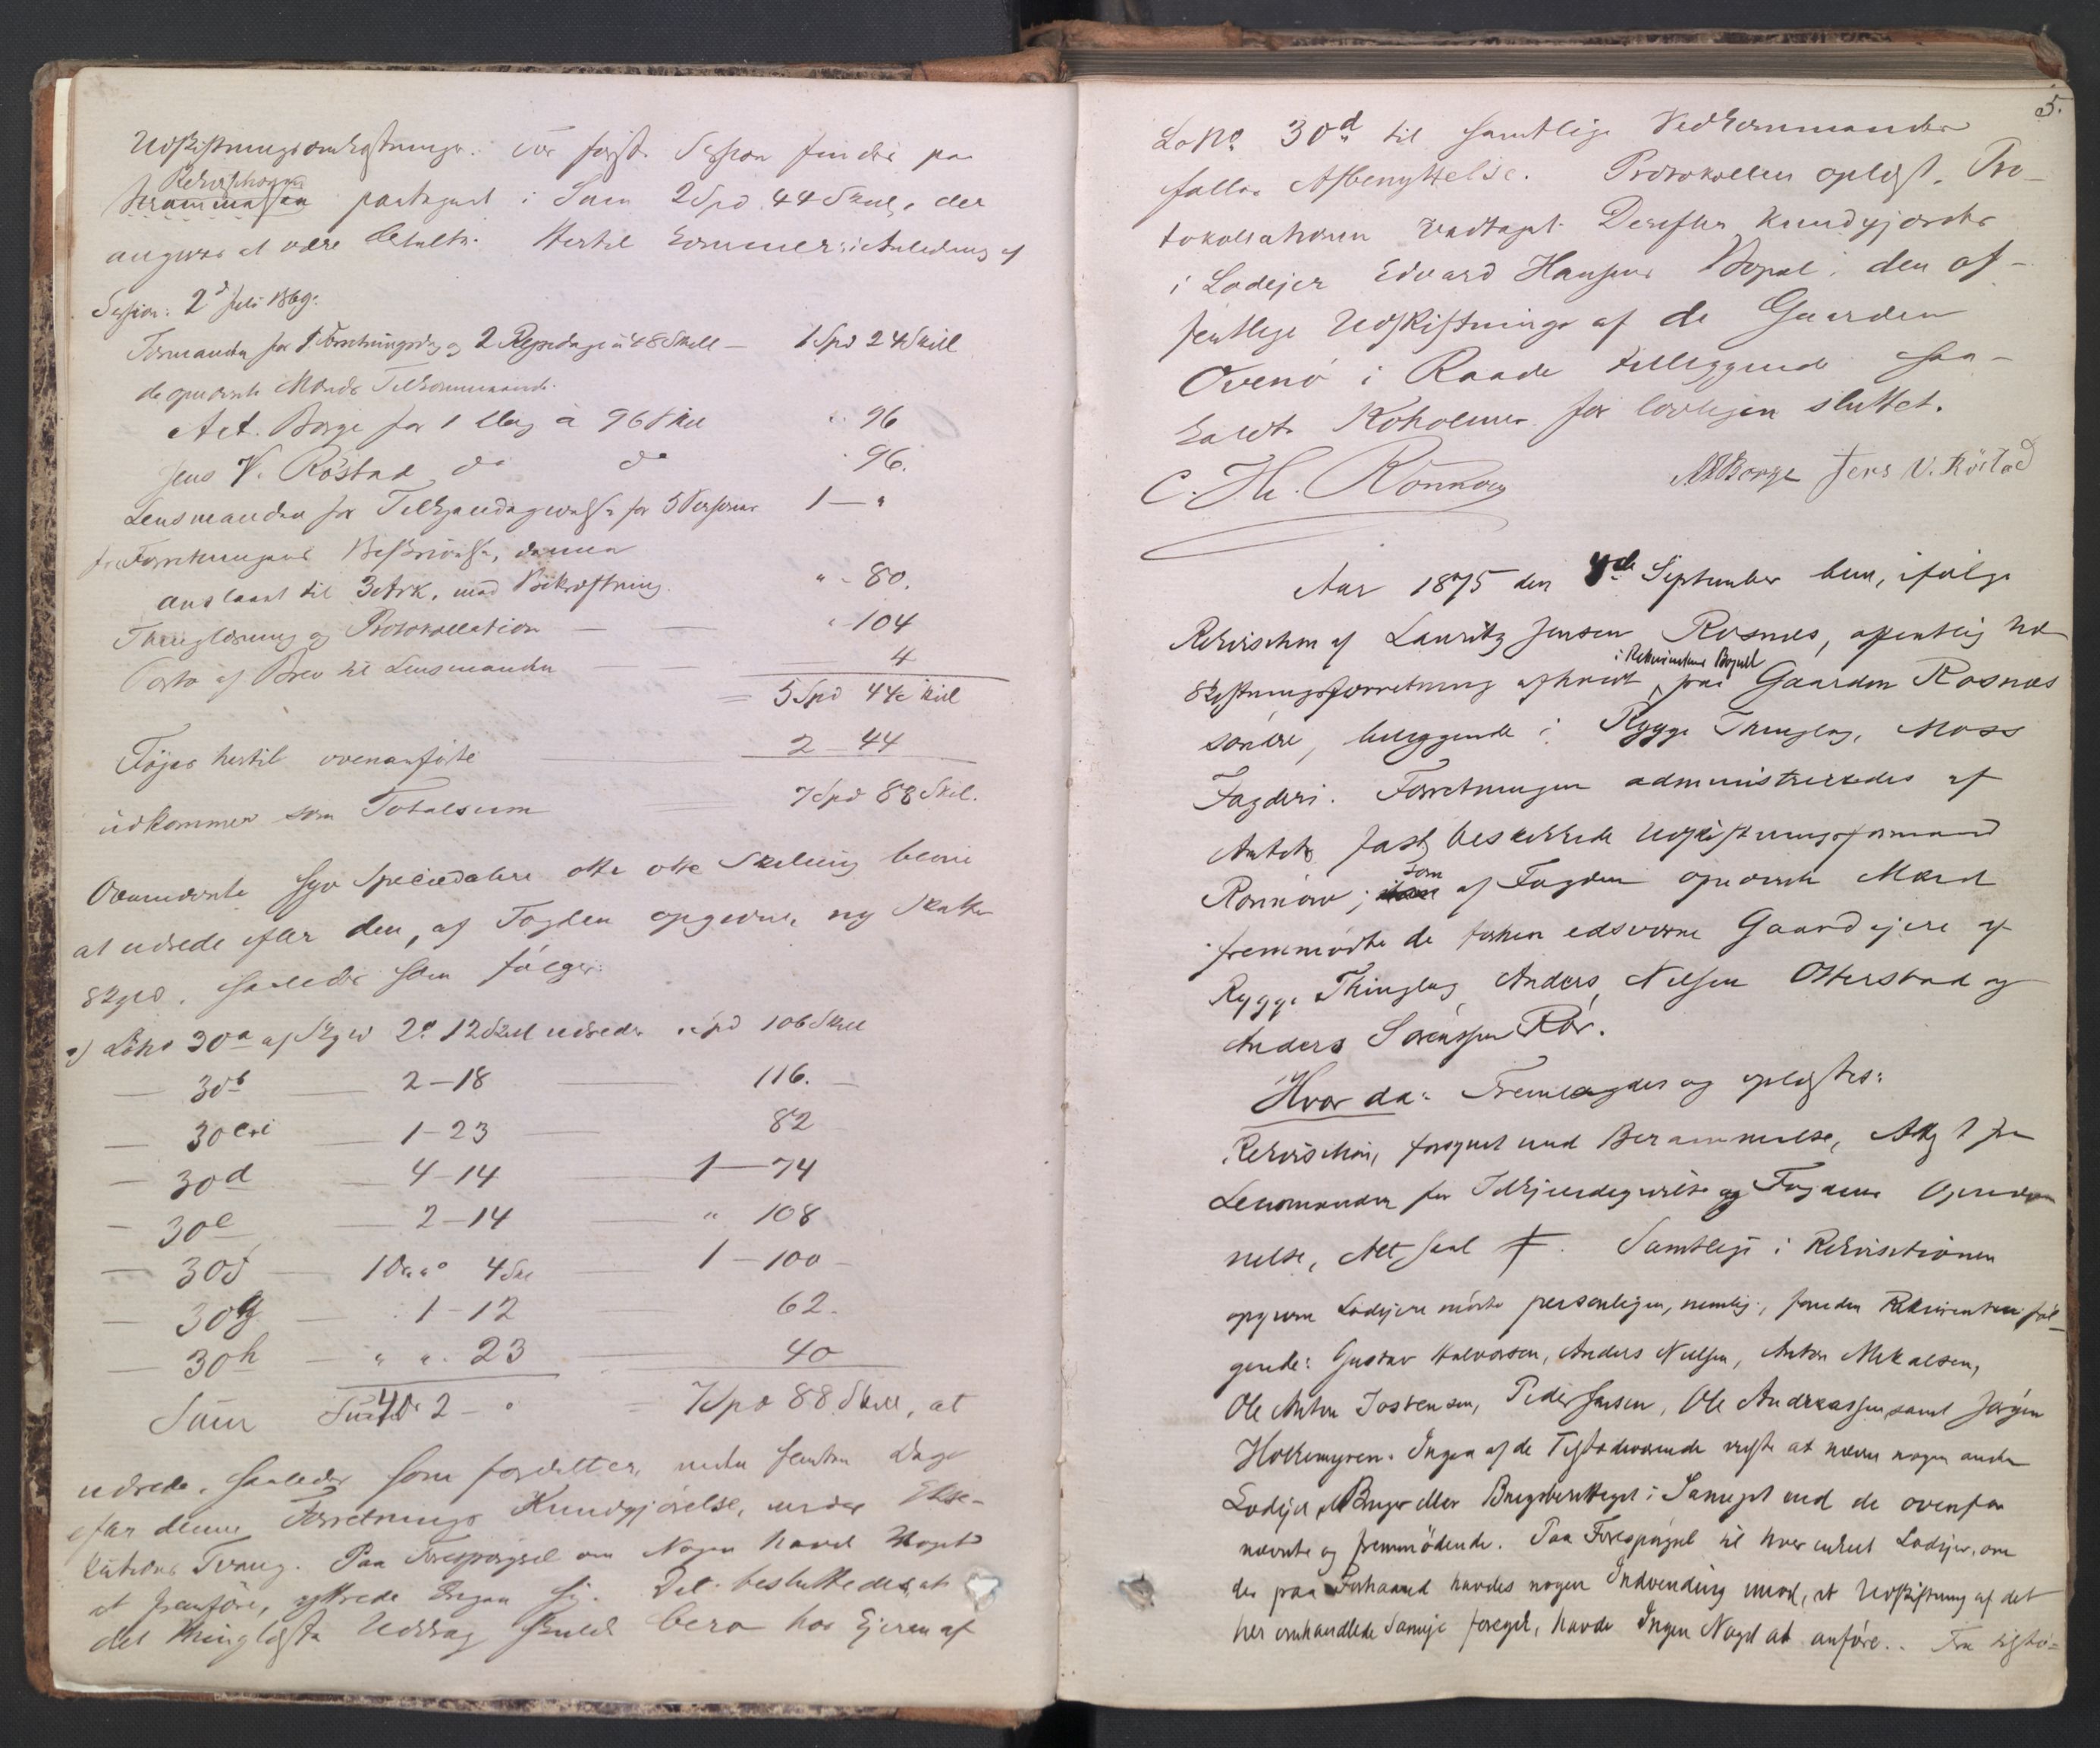 Udskiftningsomkostninger. Ved første Session findes paa
Rekvisitionen
partegnet i Sum 2 Spd 44 Skill, der
angives at være betalte. Hertil kommer i Anledning af
Session: 2d Juli 1869:
Formanden for 1 Forretningsdag og 2 Rejsedage a 48 Skill — 1 Spd 24 Skill
de opnævnte Mænds Tilkommende:
Act. Borge for 1 Dag a 96 Skill " 96
Jens V. Röstad do do " 96.
Lensmanden for Tilkjendegivelse for 5 Personer 1 — "
for Forretningens Beskrivelse, denne
anslaaet til 3 Ark, med Bekræftning " - 80.
Thinglæsning og Protokollation — — " 104
Porto af Brev til Lensmanden — — 4
= 5 Spd 44 Skill
Föjes hertil ovenanførte 2 — 44
udkommer som Totalsum 7 Spd 88 Skil.
Ovennævnte syv Speciedalere otte otte Skilling blive
at udrede efter den, af Fogden opgivne, ny Skatte-
skyld, saaledes som følger:
a) Löbno 30a af Skyld 2" 12 Skill udreder " Spd 106 Skill
— 30b — 2-18 — 116. —
— 30c — 1-23 — 82
— 30d — 4-14 — 1—74
— 30e — 2-14 — " 108
— 30f — 4 — 1—100 —
— 30g — 1-12 — 62.
— 30h — " ". 23 — 40
Sum 2 — " = 7 Spd 88 Skill, at
udrede, saaledes som fordeltes, inden femten Dage
efter denne Forretnings Kundgjörelse, under Exe-
kutions Tvang. Paa Forespørgsel om Nogen havde Noget
at fremföre, yttrede Ingen sig. Det besluttedes, at
det thinglæste Uddrag skulde bero hos Ejeren af
5.
LoNo 30d til samtlige Vedkommendes
fælles Afbenyttelse. Protokollen oplæst. Pro-
tokollationen vedtaget. Derefter kundgjordes
i Lodejer Edvard Hansens Bopæl, den of-
fentlige Udskiftning af de Gaarden
Ovenö i Raade tilliggende saa-
kaldte Koholmen for lovligen sluttet.
C. H. Rönnow A Borge Jens V. Röstad
Aar 1875 den September blev, ifølge
Rekvisition af Lauritz Jensen Rosnæs, offentlig Ud-
i Rekvirentens Bopæl
skiftningsforretning afholdt paa Gaarden Rosnæs
söndre, beliggende i Rygge Thinglag, Moss
Fogderi. Forretningen administreredes af
Amtets fast beskikkede Udskiftningsformand
Rönnow; som af Fogden opnævnte Mænd
fremmødte de forhen edsvorne Gaardejere af
Rygge Thinglag, Anders Nilsen Otterstad og
Anders Sörensen Rör.
Hvor da: Fremlagdes og oplæstes:
Rekvisition, forsynet med Berammelse, Attest fra
Lensmanden for Tilkjendegivelse og Fogdens Opnæv-
nelse, Alt Samtlige i Rekvisitionen
opgivne Lodejere mödte personligen, nemlig, foruden Rekvirenten föl-
gende: Gustav Halvorsen, Anders Nielsen, Anton Mikalsen,
Ole Anton Tostensen, Peder Jensen, Ole Andreassen samt Jörgen
Holtemyren. Ingen af de Tilstedeværende vidste at nævne nogen anden
Lodejer, Bruger eller Brugsberettiget i Sameiet end de ovenfor
nævnte og fremmödende. Paa Forespörgsel til hver enkelt Lodejer, om
der paa Forhaand havdes nogen Indvending imod, at Udskiftning af det
her omhandlede Sameje foregik, havde Ingen Noget at anföre. Fra tilstö-